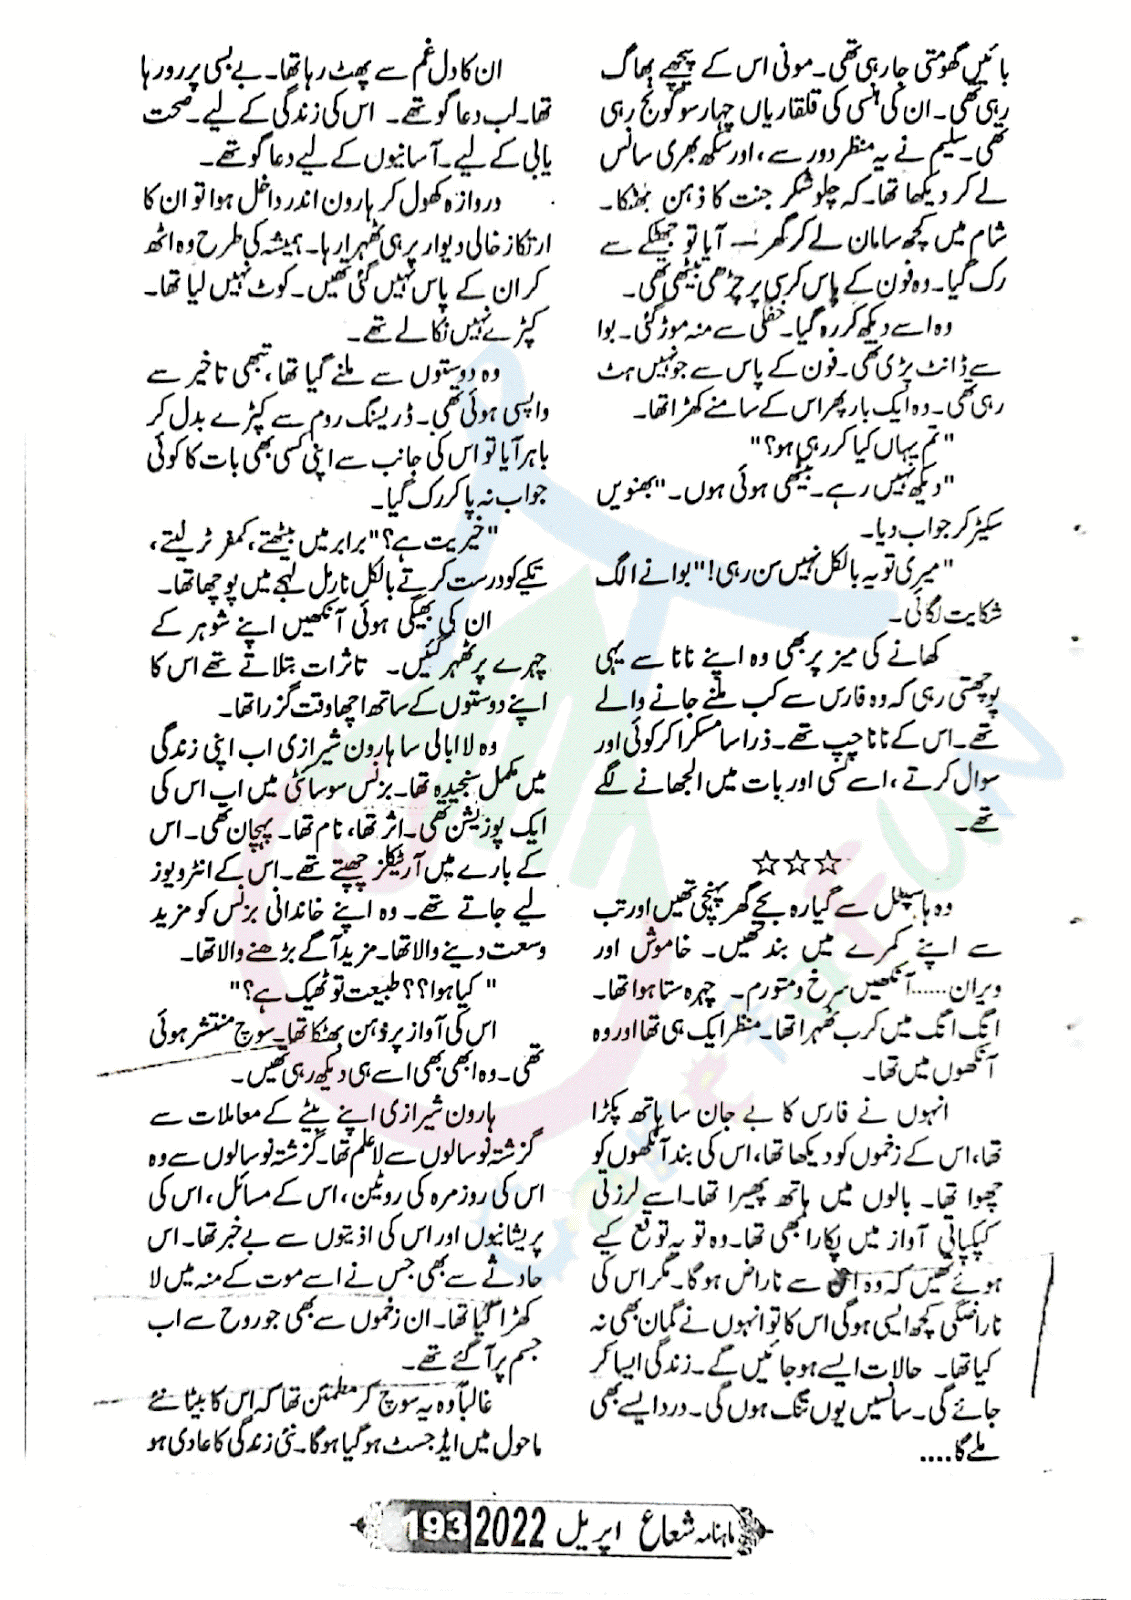 بائیں گھومتی جا رہی تھی۔ مونی اس کے پیچھے بھاگ
رہی تھی۔ ان کی ہنسی کی قلقاریاں چہار سو گونج رہی
تھی۔ سلیم نے یہ منظر دور سے، اور سکھ بھری سانس
لے کر دیکھا تھا۔ کہ چلو شکر جنت کا ذہن بھٹکا۔
شام میں کچھ سامان لے کر گھر آیا تو جھٹکے سے
رک گیا۔ وہ فون کے پاس کرسی پر چڑھی بیٹھی تھی۔
وہ اسے دیکھ کر رہ گیا۔ خفگی سے منہ موڑ گئی۔ بوا
سے ڈانٹ پڑی تھی۔ فون کے پاس سے جو نہیں ہٹ
رہی تھی۔ وہ ایک بار پھر اس کے سامنے کھڑا تھا۔
"تم یہاں کیا کر رہی ہو؟"
"دیکھ نہیں رہے۔ بیٹھی ہوئی ہوں۔" بھنویں
سکیڑ کر جواب دیا۔
"میری تو یہ بالکل نہیں سن رہی!" بوا نے الگ
شکایت لگائی۔
کھانے کی میز پر بھی وہ اپنے نانا سے یہی
پوچھتی رہی کہ وہ فارس سے کب ملنے جانے والے
تھے۔ اس کے نانا چپ تھے۔ ذرا سا مسکرا کر کوئی اور
سوال کرتے، اسے کسی اور بات میں الجھانے لگے
تھے۔
☆☆☆
وہ ہاسپٹل سے گیارہ بجے گھر پہنچی تھیں اور تب
سے اپنے کمرے میں بند تھیں۔ خاموش اور
ویران...... آنکھیں سرخ و متورم۔ چہرہ ستا ہوا تھا۔
انگ انگ میں کرب ٹھہرا تھا۔ منظر ایک ہی تھا اور وہ
آنکھوں میں تھا۔
انہوں نے فارس کا بے جان سا ہاتھ پکڑا
تھا، اس کے زخموں کو دیکھا تھا، اس کی بند آنکھوں کو
چھوا تھا۔ بالوں میں ہاتھ پھیرا تھا۔ اسے لرزتی
کپکپاتی آواز میں پکارا بھی تھا۔ وہ تو یہ توقع کیے
ہوئے تھیں کہ وہ ان سے ناراض ہو گا۔ مگر اس کی
ناراضگی کچھ ایسی ہو گی اس کا تو انہوں نے گمان بھی نہ
کیا تھا۔ حالات ایسے ہو جائیں گے۔ زندگی ایسا کر
جائے گی۔ سانسیں یوں تنگ ہوں گی۔ درد ایسے بھی
ملے گا....
ان کا دل غم سے پھٹ رہا تھا۔ بے بسی پر رو رہا
تھا۔ لب دعا گو تھے۔ اس کی زندگی کے لیے۔ صحت
یابی کے لیے۔ آسانیوں کے لیے دعا گو تھے۔
دروازہ کھول کر ہارون اندر داخل ہوا تو ان کا
ارتکاز خالی دیوار پر ہی ٹھہرا رہا۔ ہمیشہ کی طرح وہ اٹھ
کر ان کے پاس نہیں گئی تھیں۔ کوٹ نہیں لیا تھا۔
کپڑے نہیں نکالے تھے۔
وہ دوستوں سے ملنے گیا تھا، تبھی تاخیر سے
واپسی ہوئی تھی۔ ڈریسنگ روم سے کپڑے بدل کر
باہر آیا تو اس کی جانب سے اپنی کسی بھی بات کا کوئی
جواب نہ پا کر رک گیا۔
"خیریت ہے؟" برابر میں بیٹھتے، کمفرٹر لیتے،
تکیے کو درست کرتے بالکل نارمل لہجے میں پوچھا تھا۔
ان کی بھیگی ہوئی آنکھیں اپنے شوہر کے
چہرے پر ٹھہر گئیں۔ تاثرات بتلاتے تھے اس کا
اپنے دوستوں کے ساتھ اچھا وقت گزرا تھا۔
وہ لا ابالی سا ہارون شیرازی اب اپنی زندگی
میں مکمل سنجیدہ تھا۔ بزنس سوسائٹی میں اب اس کی
ایک پوزیشن تھی۔ اثر تھا، نام تھا۔ پہچان تھی۔ اس
کے بارے میں آرٹیکلز چھپتے تھے۔ اس کے انٹرویوز
لیے جاتے تھے۔ وہ اپنے خاندانی بزنس کو مزید
وسعت دینے والا تھا۔ مزید آگے بڑھنے والا تھا۔
"کیا ہوا؟؟ طبیعت تو ٹھیک ہے؟"
اس کی آواز پر ذہن بھٹکا تھا۔ سوچ منتشر ہوئی
تھی۔ وہ ابھی بھی اسے ہی دیکھ رہی تھیں۔
ہارون شیرازی اپنے بیٹے کے معاملات سے
گزشتہ نو سالوں سے لا علم تھا۔ گزشتہ نو سالوں سے وہ
اس کی روزمرہ کی روٹین، اس کے مسائل، اس کی
پریشانیوں اور اس کی اذیتوں سے بے خبر تھا۔ اس
حادثے سے بھی جس نے اسے موت کے منہ میں لا
کھڑا کیا تھا۔ ان زخموں سے بھی جو روح سے اب
جسم پر آ گئے تھے۔
غالباً وہ یہ سوچ کر مطمئن تھا کہ اس کا بیٹا نئے
ماحول میں ایڈجسٹ ہو گیا ہو گا۔ نئی زندگی کا عادی ہو
ماہنامہ شعاع اپریل 2022 193